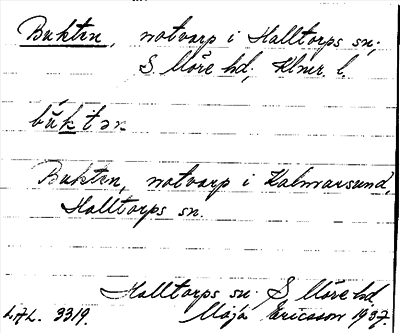 Buktən, notvarp i Halltorps sn;
S. Möre hd, Klmr. l.
búktən
Buktən, notvarp i Kalmarsund,
Halltorps sn.
Halltorps sn. S Möre hd
LAL. 3319. Maja Ericsson 1937.